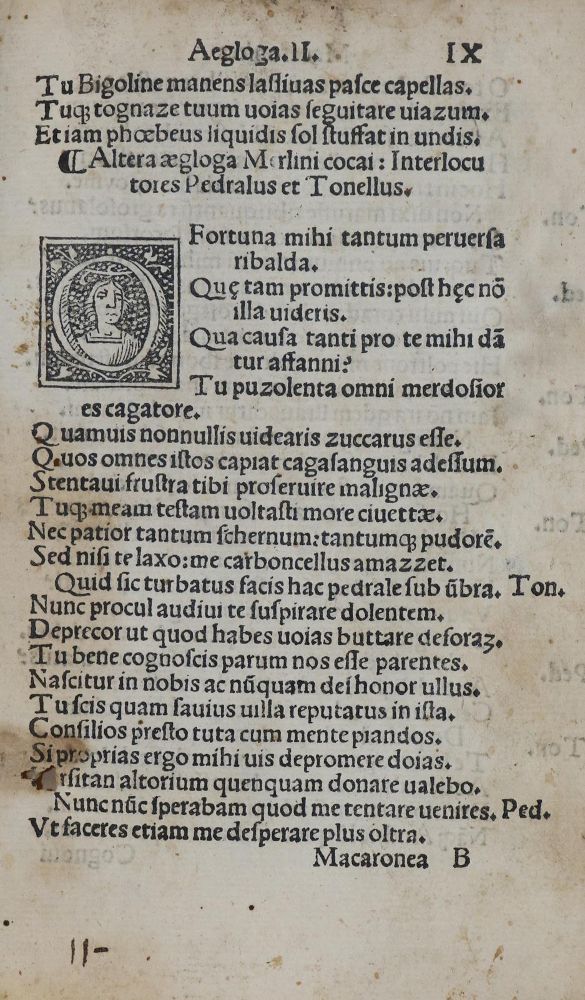 Aegloga.II. IX
Tu Bigoline manens lasſiuas paſce capellas.
Tuqꝫ tognaze tuum uoias ſeguitare uiazum.
Etiam phœbeus liquidis ſol ſtuffat in undis.
⸿ Altera ægloga Merlini cocai: Interlocu
tores Pedralus et Tonellus.
O Fortuna mihi tantum peruerſa
ribalda.
Quę tam promittis: poſt hęc nõ
illa uideris.
Qua cauſa tanti pro te mihi dã
tur affanni?
Tu puzolenta omni merdoſior
es cagatore.
Quamuis nonnullis uidearis zuccarus eſſe.
Quos omnes iſtos capiat cagaſanguis adeſſum.
Stentaui fruſtra tibi proſeruire malignæ.
Tuqꝫ meam teſtam uoltaſti more ciuettæ.
Nec patior tantum ſchernum: tantumqꝫ pudorẽ.
Sed niſi te laxo: me carboncellus amazzet.
Quid ſic turbatus facis hac pedrale ſub ũbra. Ton.
Nunc procul audiui te ſuſpirare dolentem.
Deprecor ut quod habes uoias buttare deforaꝫ.
Tu bene cognoſcis parum nos eſſe parentes.
Naſcitur in nobis ac nũquam deſhonor ullus.
Tu ſcis quam ſauius uilla reputatus in iſta.
Conſilios preſto tuta cum mente piandos.
Si proprias ergo mihi uis depromere doias.
Forſitan altorium quenquam donare ualebo.
Nunc nũc ſperabam quod me tentare uenires. Ped.
Vt faceres etiam me deſperare plus oltra.
Macaronea B
11-